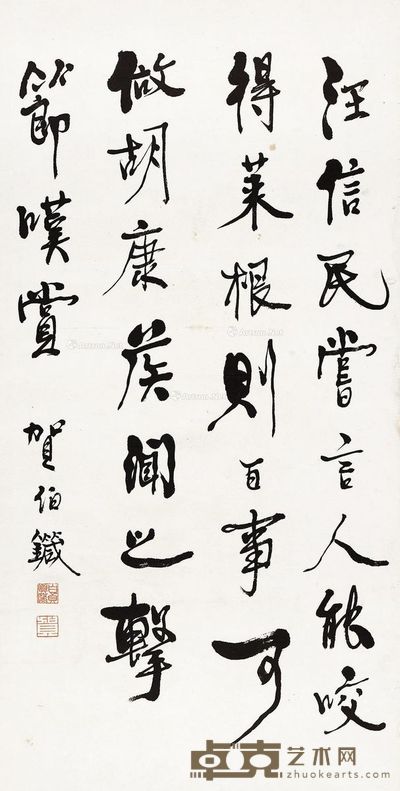 汪信民嘗言人能咬
得菜根則百事可
做胡康侯聞之擊
節嘆賞
賀伯
卓克艺术网
zhuokearts.com